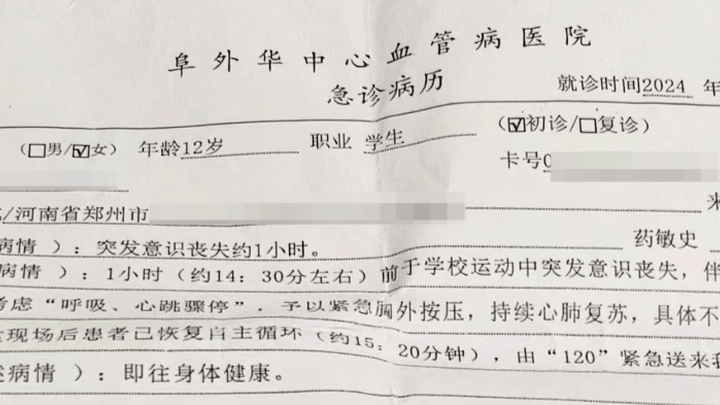 阜外华中心血管病医院
急诊病历
就诊时间2024 年
（□男/☑女） 年龄12岁 职业 学生 （☑初诊/□复诊）
卡号0
/河南省郑州市
药敏史
病情 ）：突发意识丧失约1小时。
病情 ）：1小时（约14：30分左右）前于学校运动中突发意识丧失，伴
考虑“呼吸、心跳骤停”．予以紧急胸外按压，持续心肺复苏，具体不
现场后患者已恢复自主循环（约15：20分钟），由“120”紧急送来我
病情 ）：即往身体健康。